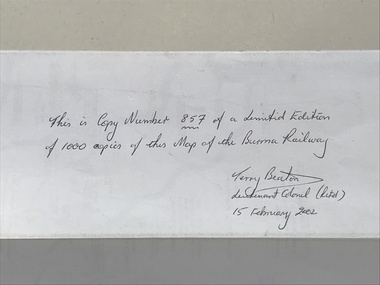 This is Copy Number 857 of a Limited Edition
of 1000 copies of this Map of the Burma Railway
Terry Beaton
Lieutenant Colonel (Retd)
15 February 2002